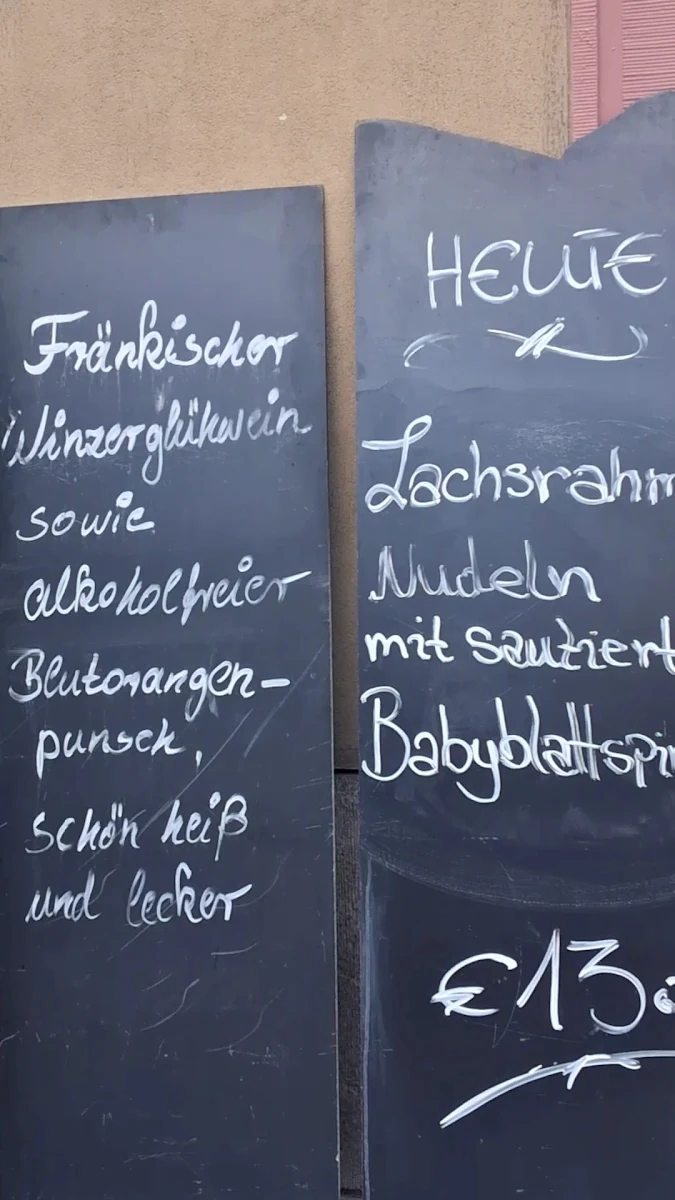 Fränkischer
Winzerglühwein
sowie
alkoholfreier
Blutorangen-
punsch,
schön heiß
und lecker
HEUTE
Lachsrahm
Nudeln
mit sautiert
Babyblattspi
€13